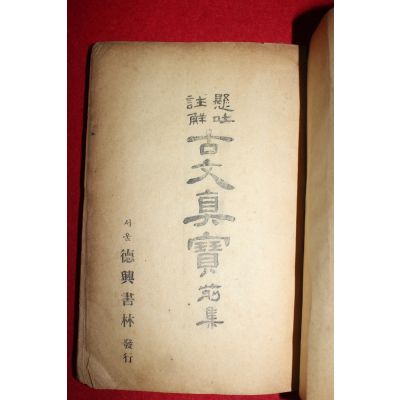 懸吐
註解
古文真寶前集
서울 德興書林 發行